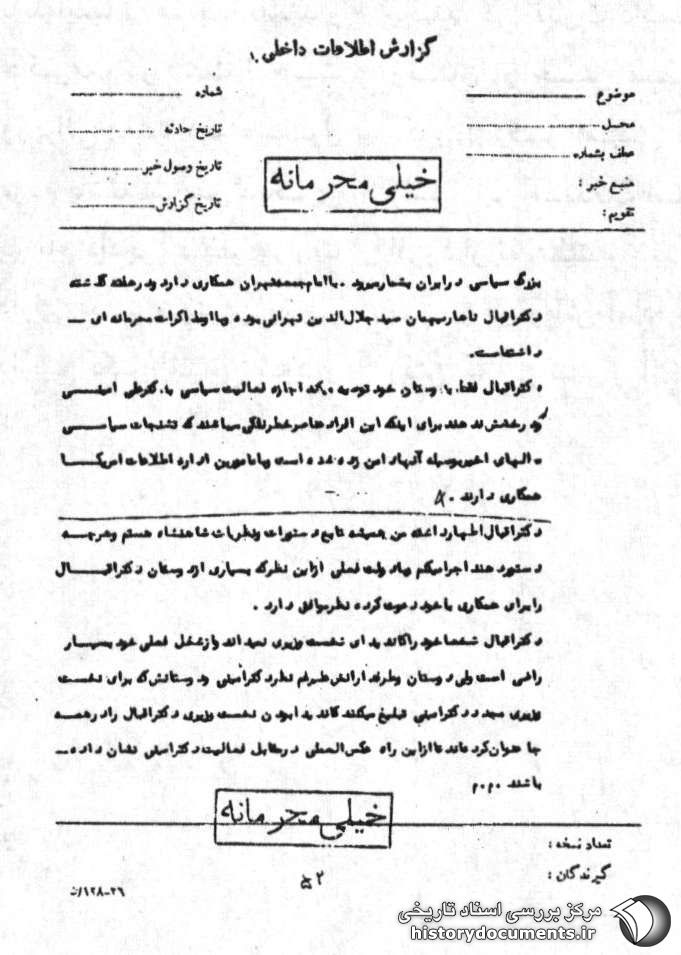 گزارش اطلاعات داخلی
موضوع
شماره
محل
تاریخ حادثه
عطف بشماره
تاریخ وصول خبر
منبع خبر :
تاریخ گزارش
تقویم :
خیلی محرمانه
بزرگ سیاسی در ایران بشمار میرود . با امام جمعه تهران همکاری دارد و در هفته گذشته
دکتر اقبال ناهار میهمان سید جلال الدین تهرانی بوده و با او مذاکرات محرمانه ای
داشته است.
دکتر اقبال فقط به دوستان خود توصیه میکند اجازه فعالیت سیاسی به دکتر علی امینی
و درخشش ندهند برای اینکه این افراد عناصر خطرناکی میباشند که تشنجات سیاسی
سالهای اخیر بوسیله آنها دامن زده شده است و با مامورین اداره اطلاعات امریکا
همکاری دارند .
دکتر اقبال اظهار داشته من همیشه تابع دستورات و نظریات شاهنشاه هستم و هرچه
دستور دهند اجرا میکنم و با دولت فعلی از این نظر که بسیاری از دوستان دکتر اقبال
را برای همکاری با خود دعوت کرده نظر موافق دارد .
دکتر اقبال شخصا خود را کاندیدای نخست وزیری نمیداند و از شغل فعلی خود بسیار
راضی است ولی دوستان و طرفدارانش علیرغم نظر دکتر امینی و دوستانش که برای نخست
وزیری مجدد دکتر امینی تبلیغ میکنند کاندیدا بودن نخست وزیری دکتر اقبال را در همه
جا عنوان کرده اند تا از این راه عکس العملی در مقابل فعالیت دکتر امینی نشان داده
باشند . م.م
خیلی محرمانه
تعداد نسخه :
گیرندگان :
۵۲
۱۲۸-۲۶/ث
مرکز بررسی اسناد تاریخی
historydocuments.ir